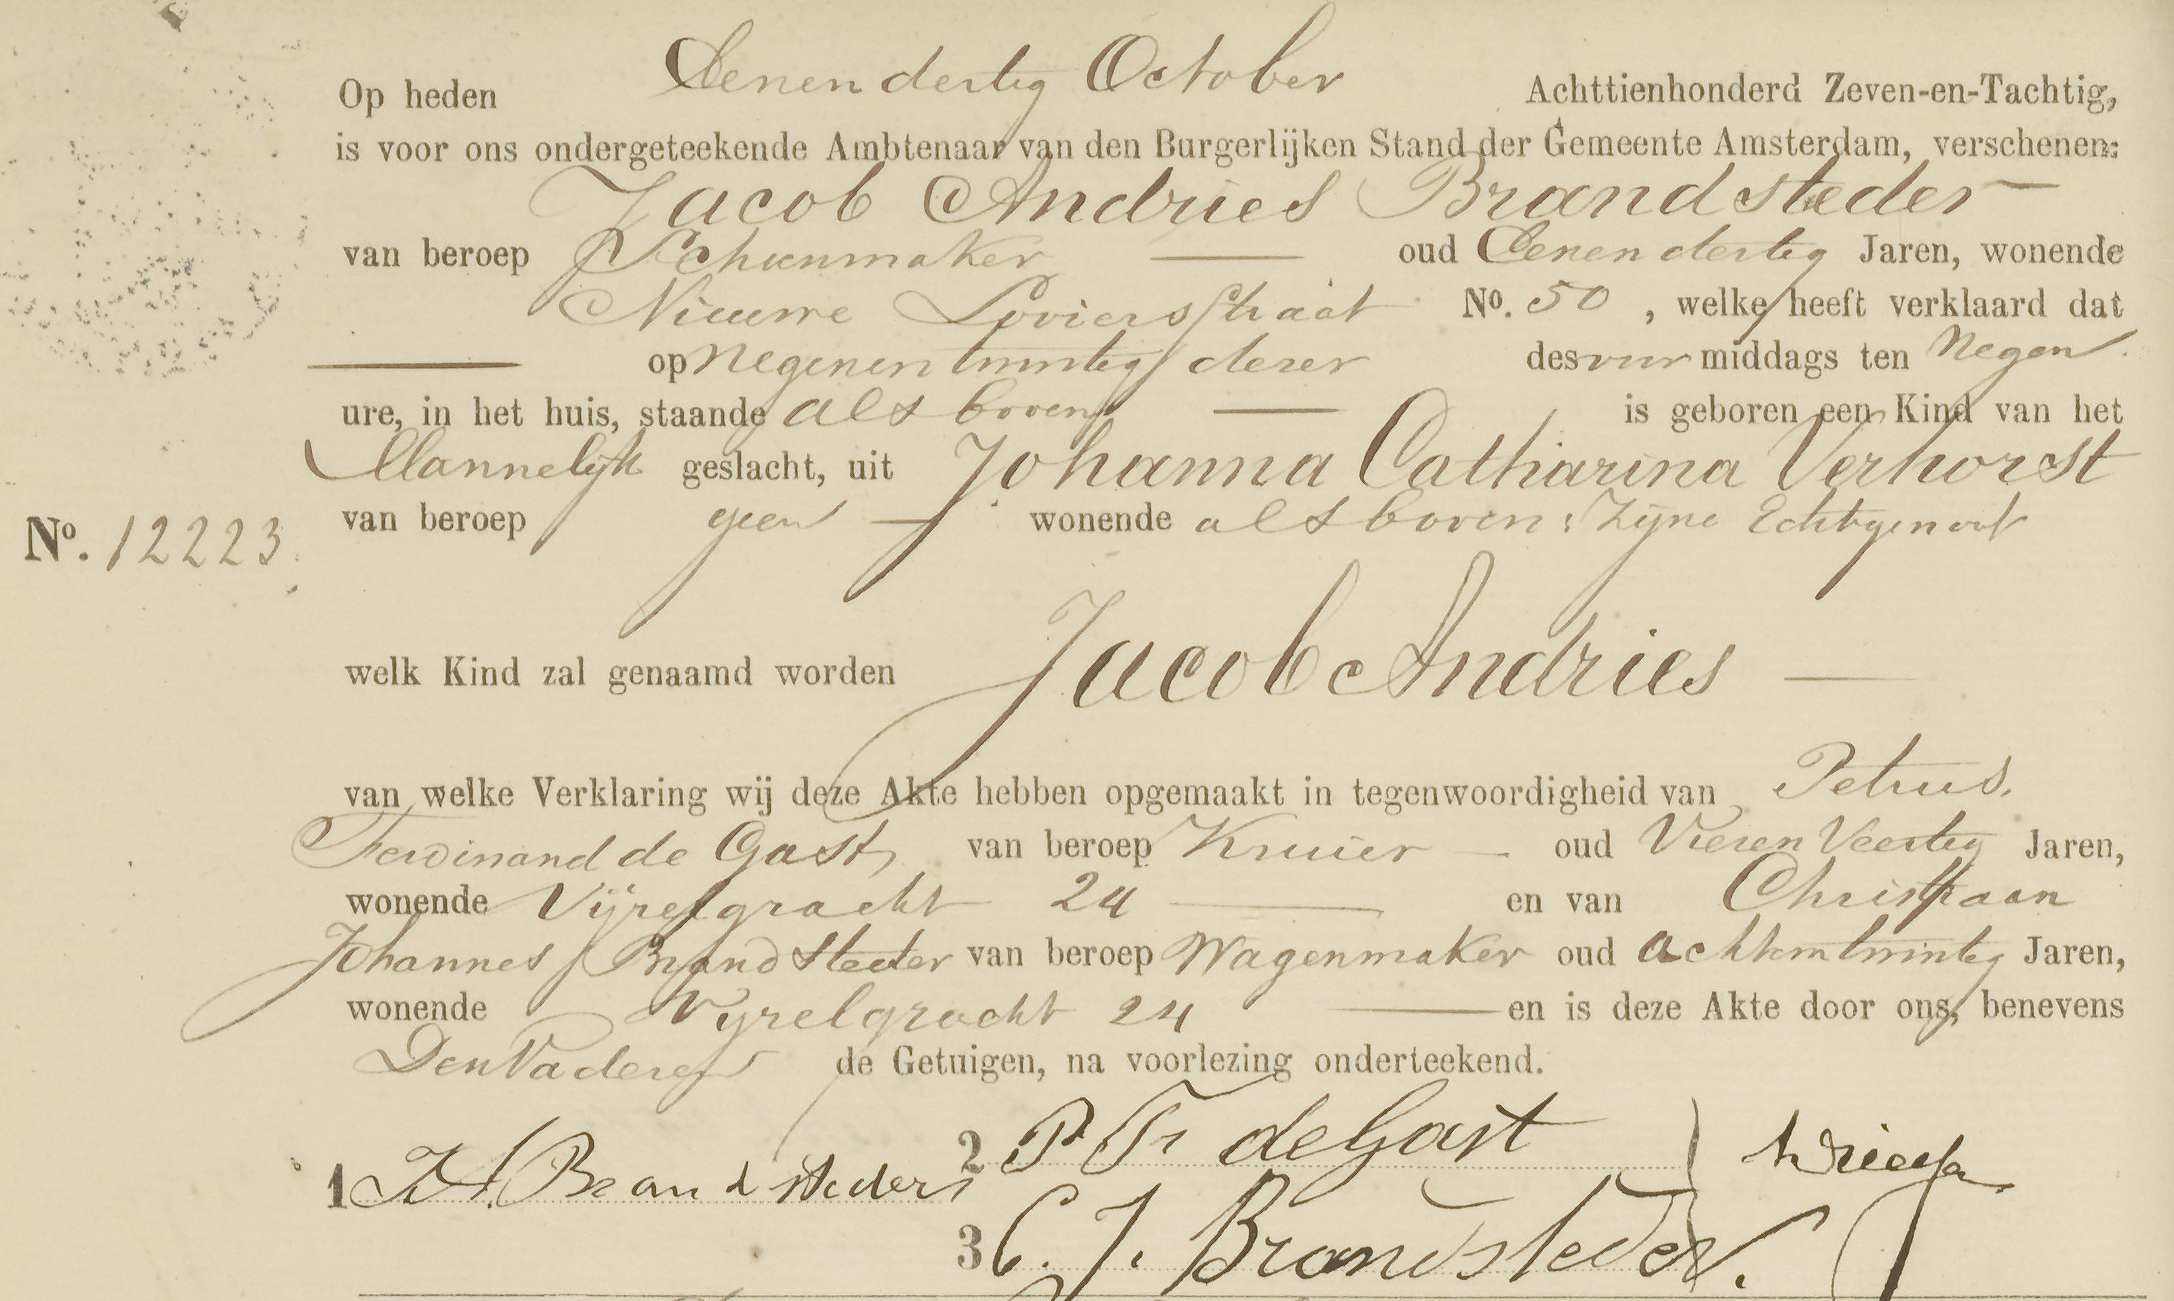 Op heden Eenendertig October Achttienhonderd Zeven-en-Tachtig,
is voor ons ondergeteekende Ambtenaar van den Burgerlijken Stand der Gemeente Amsterdam, verschenen:
Jacob Andries Brandsteder
van beroep Schoenmaker oud Eenendertig Jaren, wonende
Nieuwe Looiersstraat No. 50, welke heeft verklaard dat
op Negenentwintig dezer des voor middags ten Negen
ure, in het huis, staande als boven is geboren een Kind van het
Mannelijk geslacht, uit Johanna Catharina Verhorst
No. 12223 van beroep geen wonende als boven, Zijne Echtgenoot
welk Kind zal genaamd worden Jacob Andries
van welke Verklaring wij deze Akte hebben opgemaakt in tegenwoordigheid van Petrus
Ferdinand de Gast, van beroep Kruier oud Vierenveertig Jaren,
wonende Vijzelgracht 24 en van Christiaan
Johannes Brandsteder van beroep Wagenmaker oud achtentwintig Jaren,
wonende Vijzelgracht 24 en is deze Akte door ons, benevens
Den Vader en de Getuigen, na voorlezing onderteekend.
1 J A Brandsteder 2 P Fr de Gast
3 C. J. Brandsteder.